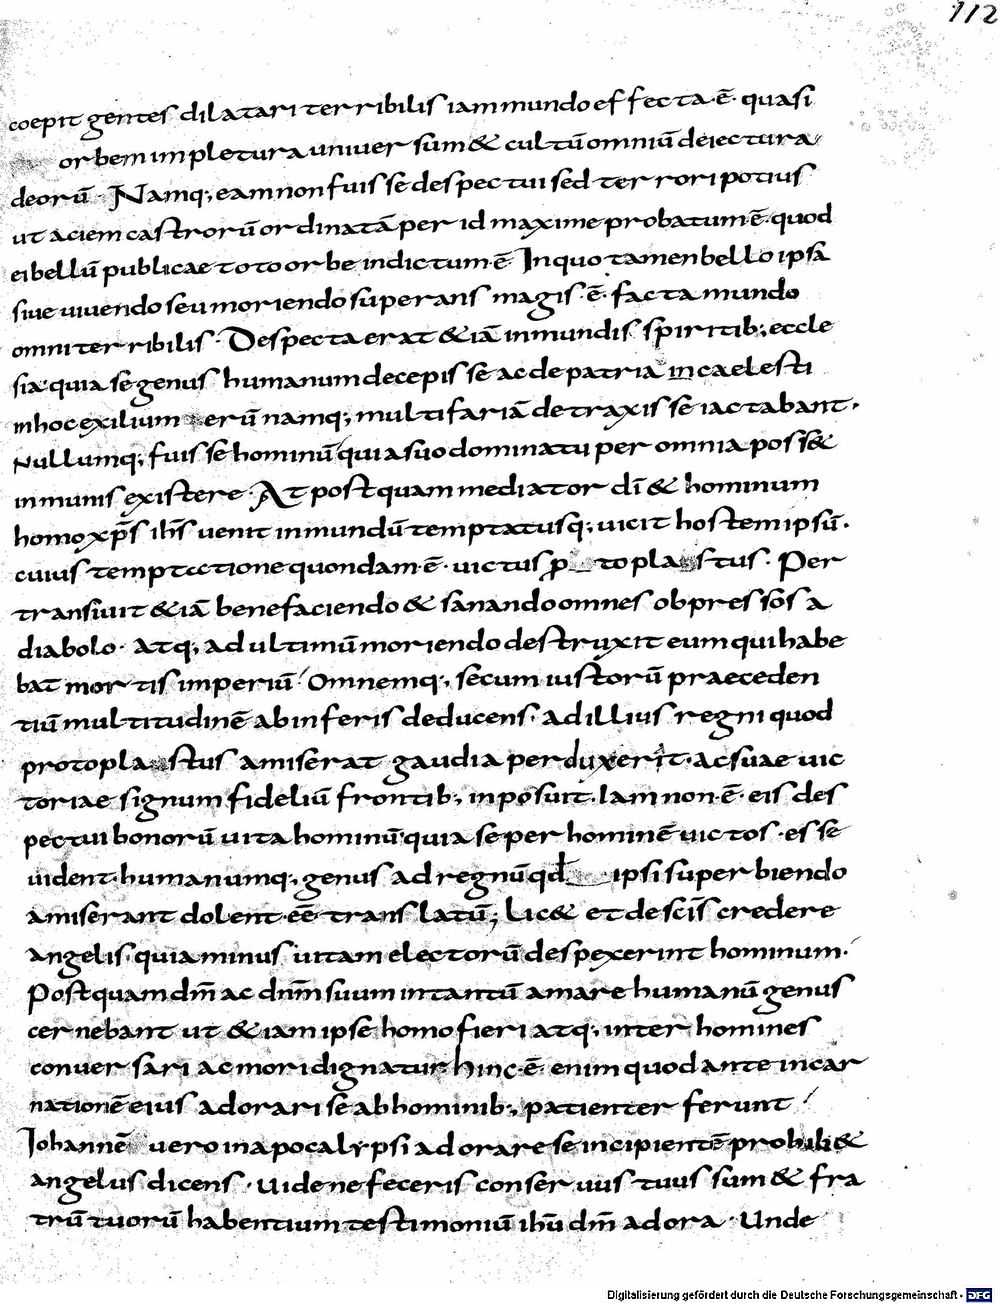 112
coepit gentes dilatari terribilis iam mundo effecta·ē· quasi
orbem impletura uniuersum & cultū omniū deiectura
deorū Namq; eam non fuisse despectui sed terrori potius
ut aciem castrorū ordinatā per id maxime probatum·ē· quod
ei bellū publicae toto orbe indictum·ē· In quo tamen bello ipsa
siue uiuendo seu moriendo superans magis·ē· facta mundo
omni terribilis· Despecta erat &iā inmundis spiritib; eccle
sia· quia se genus humanum decepisse ac de patria in caelesti
in hoc exilium erū namq; multifariā detraxisse iactabant·
Nullumq; fuisse hominū qui a suo dominatu per omnia poss&
inmunis existere· At postquam mediator dī & hominum
homo xp̄s ih̄s uenit in mundū temptatusq; uicit hostem ipsū·
cuius temptatione quondam·ē· uictus protoplastus· Per
transiuit &iā benefaciendo & sanando omnes obpressos a
diabolo· Atq; ad ultimū moriendo destruxit eum qui habe
bat mortis imperiū Omnemq; secum iustorū praeceden
tiū multitudinē ab inferis deducens· ad illius regni quod
protoplastus amiserat gaudia perduxerit· ac suae uic
toriae signum fideliū frontib; inposuit· Iam non·ē· eis des
pectui bonorū uita hominū· quia se per hominē uictos·esse
uident· humanumq; genus ad regnū qd̄ ipsi superbiendo
amiserant dolent·eē· translatū; Lic& et de sc̄is credere
angelis· quia minus uitam electorū despexerint hominum·
Postquam dm̄ ac dnm̄ suum in tantū amare humanū genus
cernebant ut &iam ipse homo fieri atq; inter homines
conuersari ac mori dignatur hinc·ē· enim quod ante incar
nationē eius adorari se ab hominib; patienter ferunt
Iohannē uero in apocalypsi adorare se incipientē prohib&
angelus dicens· Uide ne feceris conseruus tuus sum & fra
trū tuorū habentium testimoniū ihū dm̄ adora· Unde
Digitalisierung gefördert durch die Deutsche Forschungsgemeinschaft - DFG